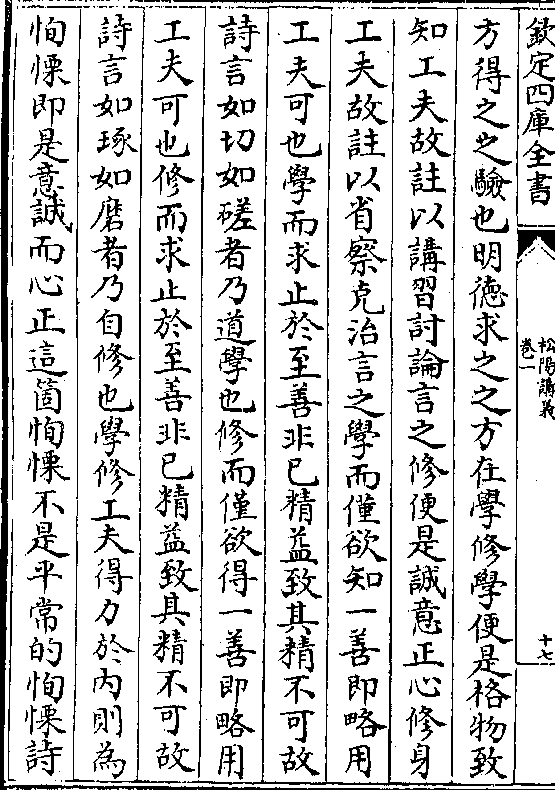 欽定四庫全書
松陽講義
卷一
十七
方得之之驗也明德求之之方在學修學便是格物致
知工夫故註以講習討論言之修便是誠意正心修身
工夫故註以省察克治言之學而僅欲知一善即略用
工夫可也學而求止於至善非已精益致其精不可故
詩言如切如磋者乃道學也修而僅欲得一善即略用
工夫可也修而求止於至善非已精益致其精不可故
詩言如琢如磨者乃自修也學修工夫得力於內則為
恂慄即是意誠而心正這箇恂慄不是平常的恂慄詩